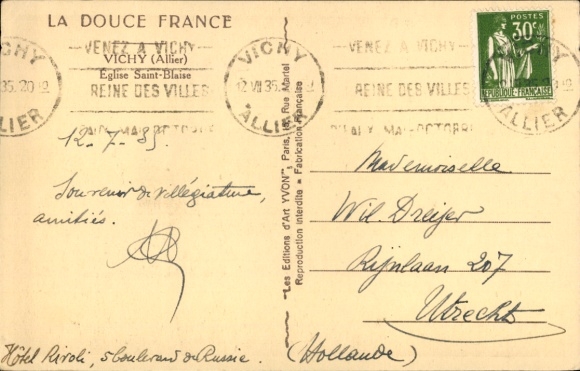 LA DOUCE FRANCE
VICHY (Allier)
Eglise Saint-Blaise
VENEZ A VICHY
REINE DES VILLES
VICHY
ALLIER
35. 20
VICHY
12 VII 35
ALLIER
VENEZ A VICHY
REINE DES VILLES
MAI-OCTOBRE
POSTES
30c
REPUBLIQUE-FRANÇAISE
12-7-35.
Souvenir de villégiature,
amitiés.
Hôtel Rivoli, 5 boulevard de Russie.
"Les Editions d'Art YVON", Paris, Rue Martel
Reproduction interdite Fabrication Française
Mademoiselle
Wil. Dreijer
Rijnlaan 207
Utrecht
(Hollande)